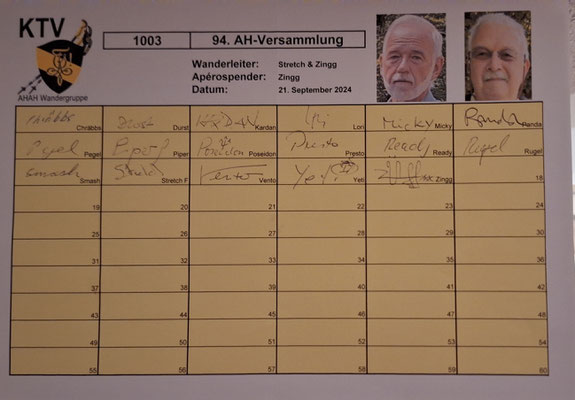 KTV
1003 94. AH-Versammlung
Wanderleiter: Stretch & Zingg
Apérospender: Zingg
Datum: 21. September 2024
AHAH Wandergruppe
Chräbbs Durst Kardan Micky Ronda
Chräbbs Durst Kardan Lori Micky Randa
Pegel Piper Poseidon Presto Ready Rugel
Pegel Piper Poseidon Presto Ready Rugel
Smash Stretch Vento Yeti
Smash Stretch F Vento Yeti Zingg 18
19 20 21 22 23 24
25 26 27 28 29 30
31 32 33 34 35 36
37 38 39 40 41 42
43 44 45 46 47 48
49 50 51 52 53 54
55 56 57 58 59 60